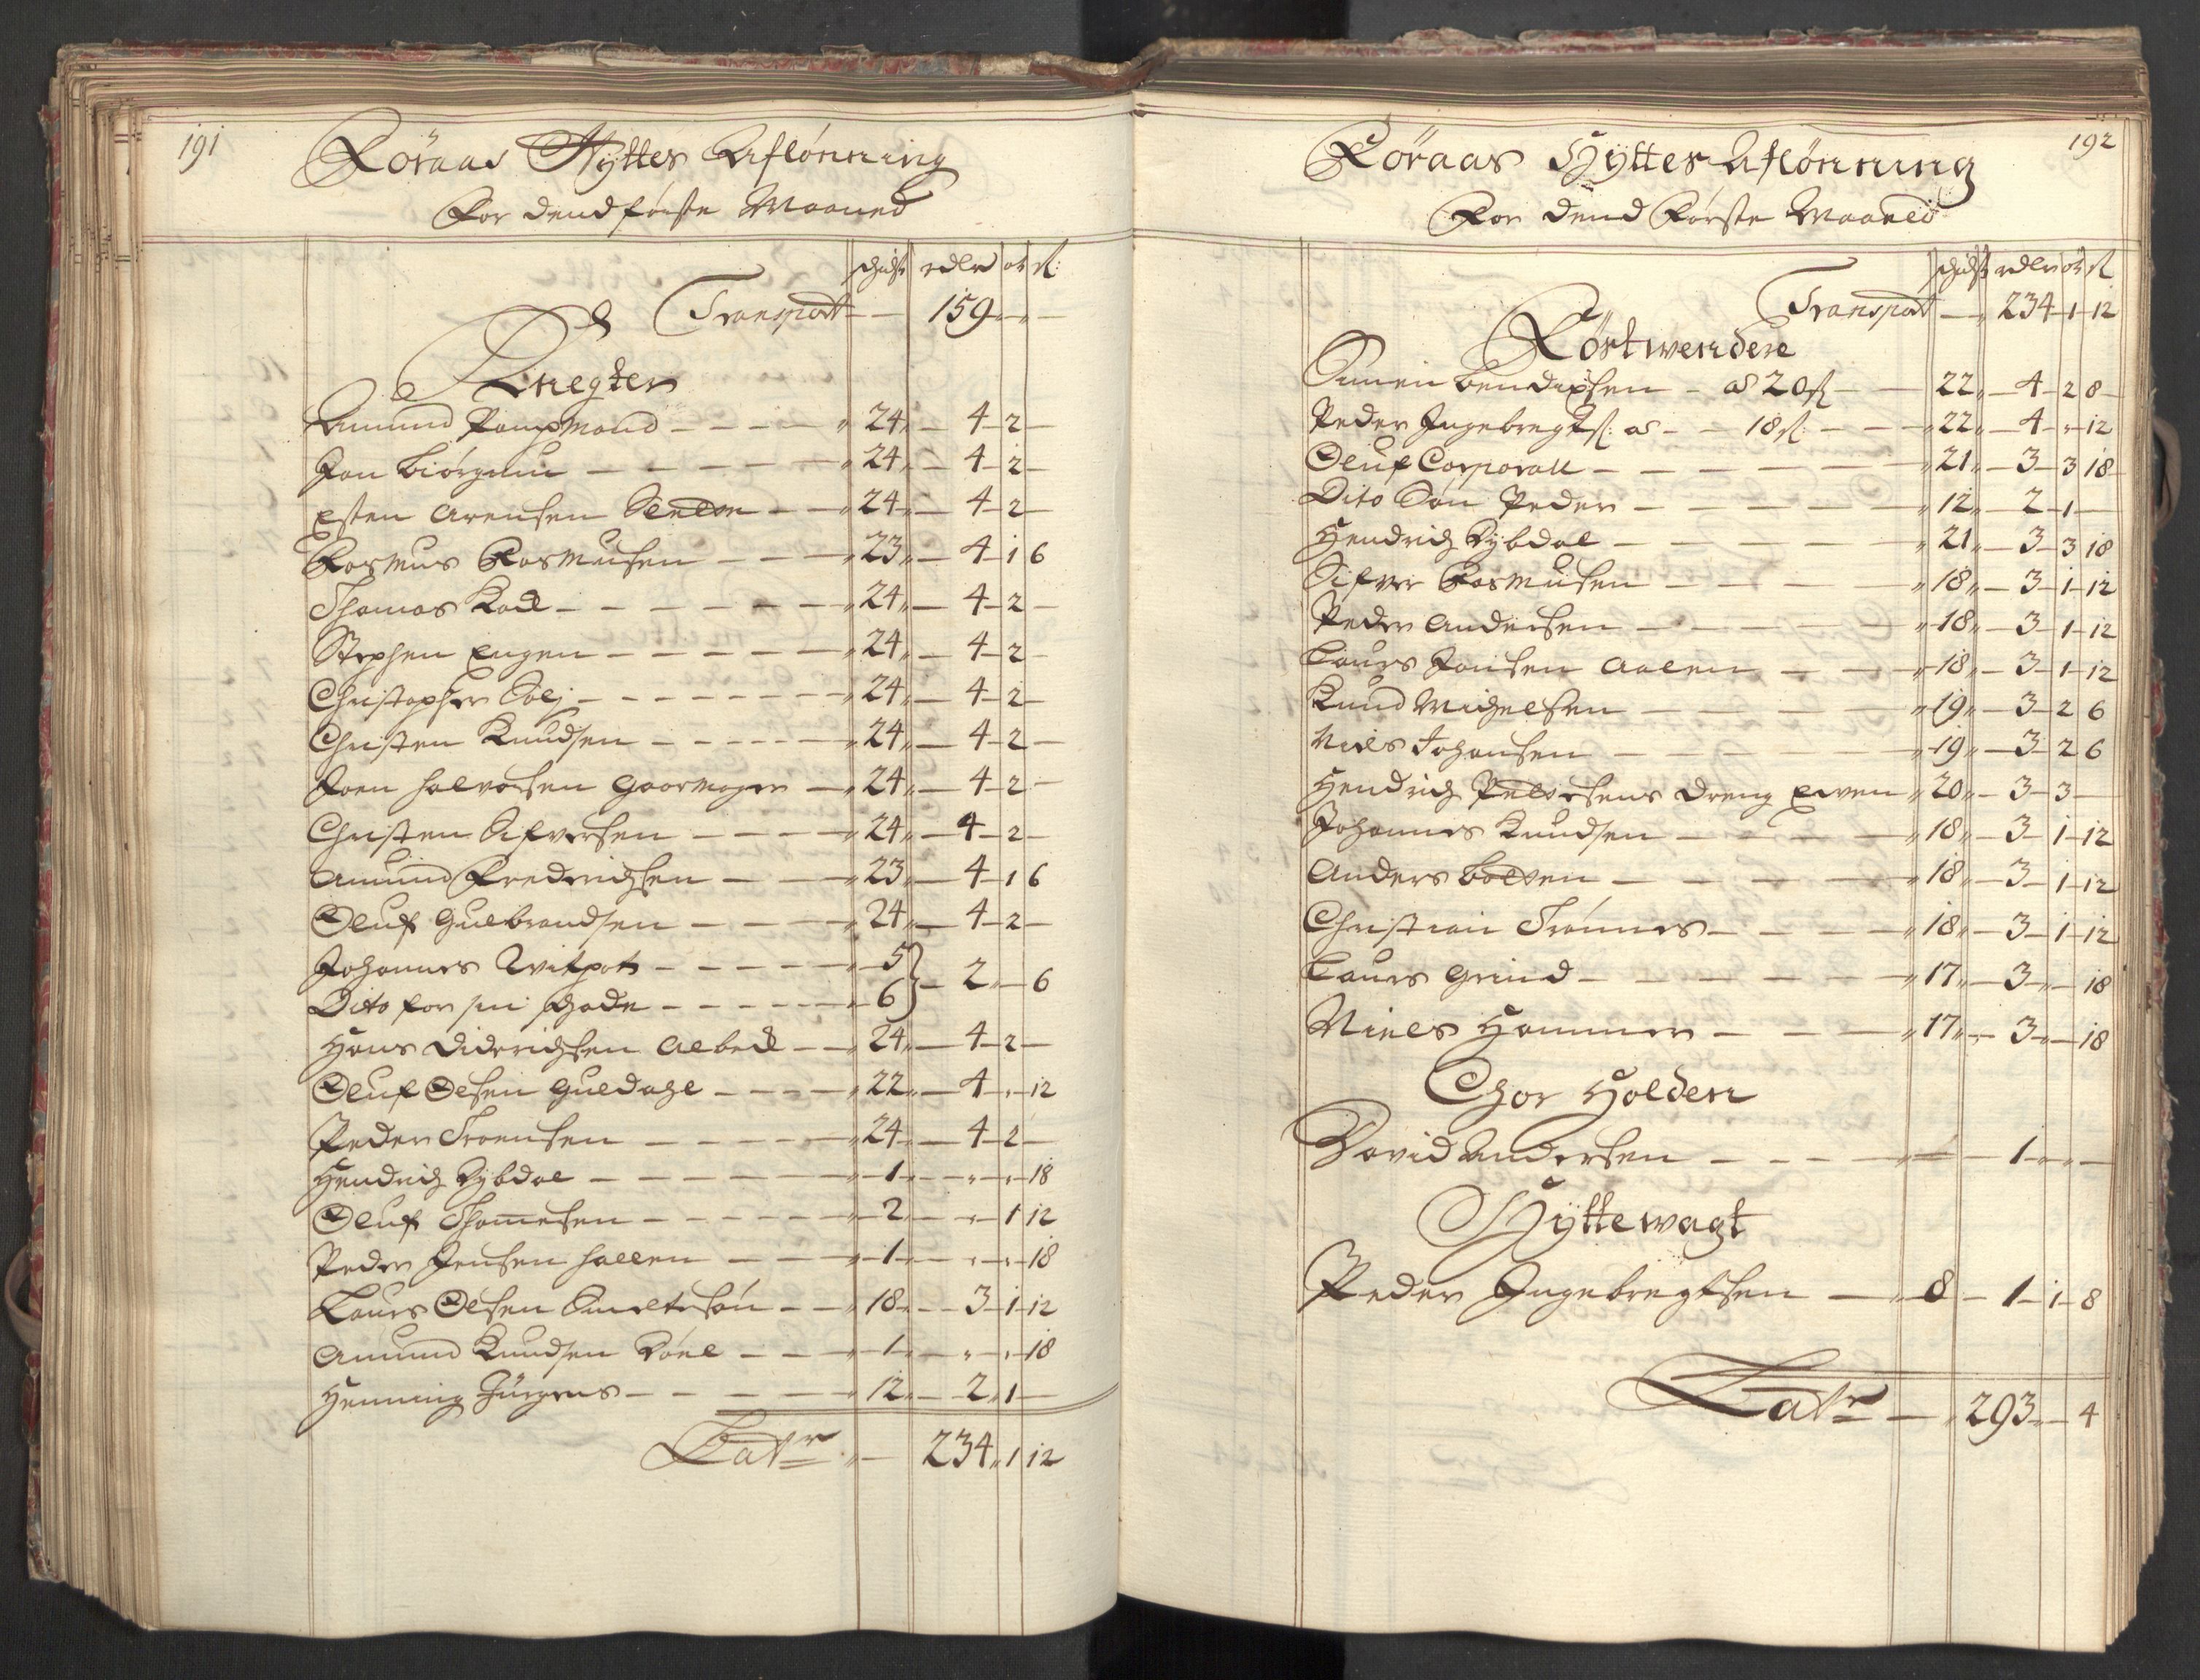 191
Röraas Hyttes Aflönning
For dend förste Maaned
schicht rdlr ort ſl:
Transport — 159 " —
Knegter
Amund Kampmand — 24 — 4 — 2 —
Jon Biörgum — 24 — 4 — 2 —
Esten Arensen — 24 — 4 — 2 —
Rasmus Rasmusen — 23 — 4 — 1 6
Thomas Kod — 24 — 4 — 2 —
Stephen Engen — 24 — 4 — 2 —
Christopher — 24 — 4 — 2 —
Christen Knudsen — 24 — 4 — 2 —
Joen Halvorsen — 24 — 4 — 2 —
Christen Sifversen — 24 — 4 — 2 —
Amund Fredrichsen — 23 — 4 — 1 6
Oluf Gulbrandsen — 24 — 4 — 2 —
Johannes — 5
Dito for sin — 6 } — 2 " — 6
Hans Diderichsen — 24 — 4 — 2 —
Oluf Olsen Guldahl — 22 — 4 " — 12
Peder Troensen — 24 — 4 — 2 —
Hendrich Dybdal — 1 — " — " — 18
Oluf Thomesen — 2 — " — 1 12
Peder Jensen — 1 — " — " — 18
Laurs Olsen — 18 — 3 — 1 — 12
Amund Knudsen — 1 — " — " — 18
Henning Jürgens — 12 — 2 — 1 —
Latr — 234 " 1 12
192
Röraas Hyttes Aflönning
For dend Förste Maaned
schicht rdlr ort ſl
Transport — 234 — 1 — 12
Röstwendere
Simen Bendixsen — a 20 ſl — 22 — 4 — 2 8
Peder Ingebregts: a — 18 ſl — 22 — 4 — " — 12
Oluf Corporall — 21 — 3 — 3 18
Dito Sön Peder — 12 — 2 — 1 —
Hendrich Dybdal — 21 — 3 — 3 18
Sifver Rasmusen — 18 — 3 — 1 — 12
Peder Andersen — 18 — 3 — 1 — 12
Laurs Jonsen Aalen — 18 — 3 — 1 — 12
Knud Michelsen — 19 — 3 — 2 6
Niels Johansen — 19 — 3 — 2 6
Hendrich Pedersens Dreng Ewen — 20 — 3 — 3 —
Johannes Knudsen — 18 — 3 — 1 — 12
Anders Bolten — 18 — 3 — 1 — 12
Christian Trönnes — 18 — 3 — 1 — 12
Laurs Grind — 17 — 3 — " — 18
Niels Hammer — 17 — 3 — " — 18
Chor Holden
David Andersen — 1 — " —
Hyttewagt
Peder Ingebregtsen — 8 — 1 — 1 — 8
Latr — 293 " — 4